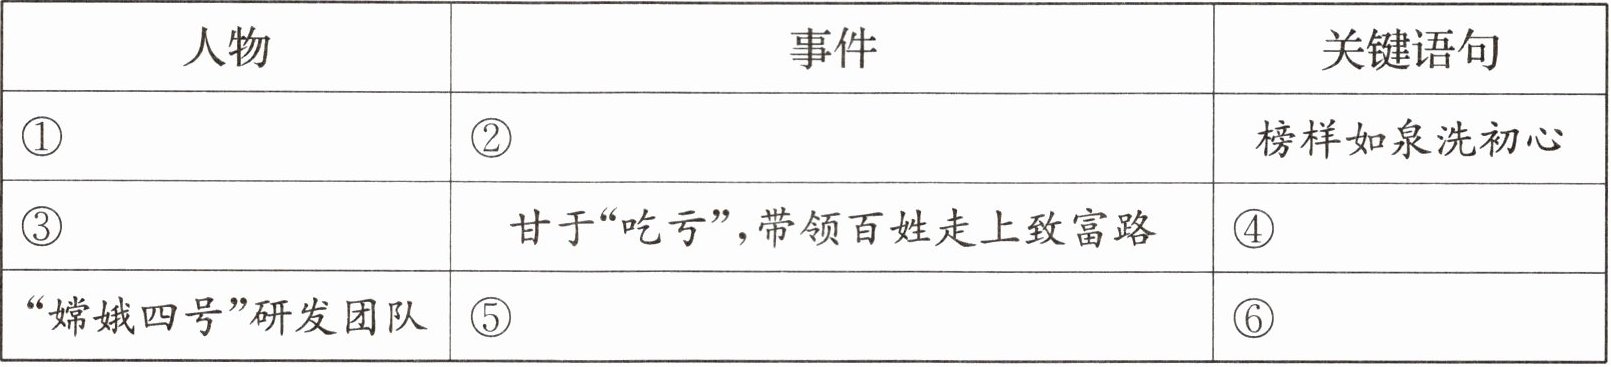 人物 事件 关键语句
① ② 榜样如泉洗初心
③ 甘于“吃亏”,带领百姓走上致富路 ④
“嫦娥四号”研发团队 ⑤ ⑥